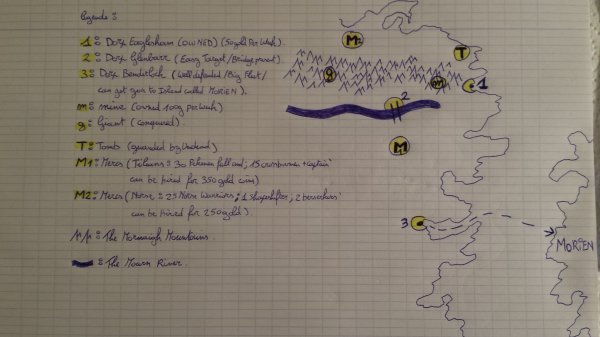 legende:
1: Dorf Eaglehorn (OWNED) (50gold Per Week).
2: Dorf Glenbarr (Easy Target/Bridge present)
3: Dorf (Well defended/Big Fleet/
can get you to Island called MORIEN).
m: meine (owned 100g per week)
g: Giant (conquered).
T: Tomb (guarded by Undead)
M1: Mercs (
can be hired for 350 gold coins)
M2: Mercs (Norse: 25 Norse Warriors; 1 shapeshifter; 2 berserkers
can be hired for 250 gold)
The Mountains
The Mourn River.
M
T
g
m
1
2
M
3
MORIEN